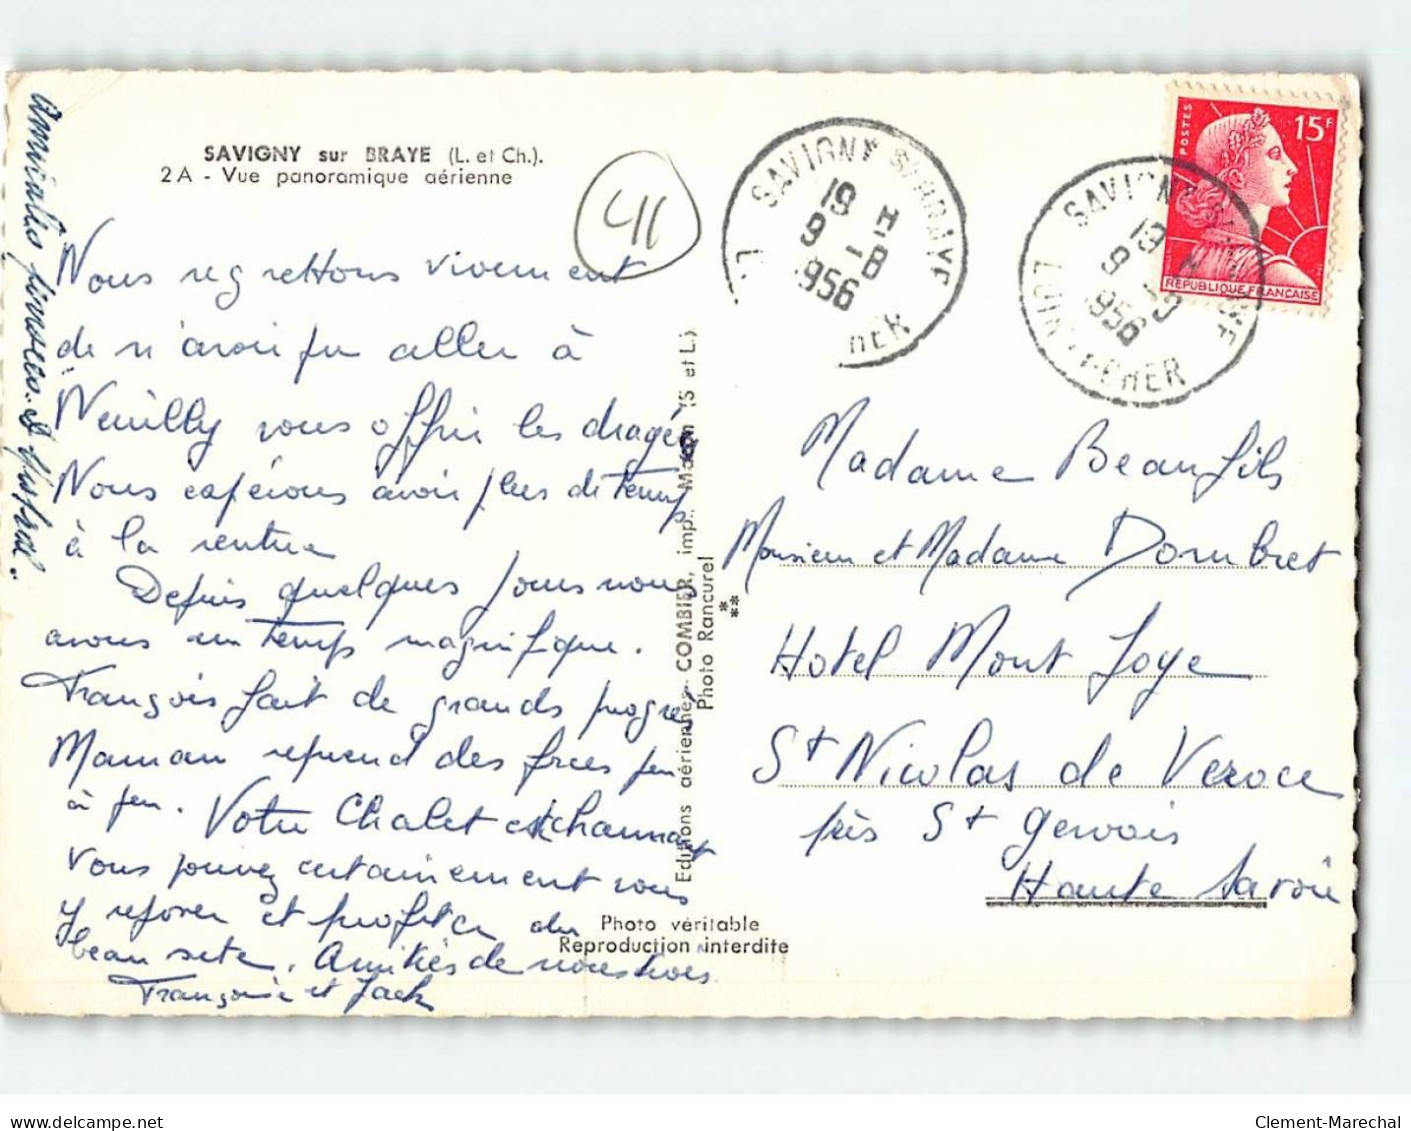 SAVIGNY sur BRAYE (L. et Ch.).
2 A - Vue panoramique aérienne
41
Nous regrettons vivement
de n'avoir pu aller à
Neuilly vous offrir les dragées
Nous espérons avoir plus de temps
à la rentrée
Depuis quelques jours nous
avons un temps magnifique.
François fait de grands progrès
Maman reprend des forces peu
à peu. Votre Chalet est charmant
Vous pouvez certainement vous
y reposer et profiter du
beau site. Amitiés de nous trois.
Françoise et Jack
Editions aériennes COMBIER, imp. Macon (S et L).
Photo Rancurel
Photo véritable
Reproduction interdite
SAVIGNY S/ BRAYE
19 H
9 - 8
1956
L. CHER
SAVIGNY S/ BRAYE
19 H
9 - 8
1956
LOIR-ET-CHER
POSTES
15F
REPUBLIQUE FRANÇAISE
Madame Beaufils
Monsieur et Madame Dombret
Hotel Mont Joye
St Nicolas de Veroce
près St Gervais
Haute Savoie
delcampe.net
Clement-Marechal